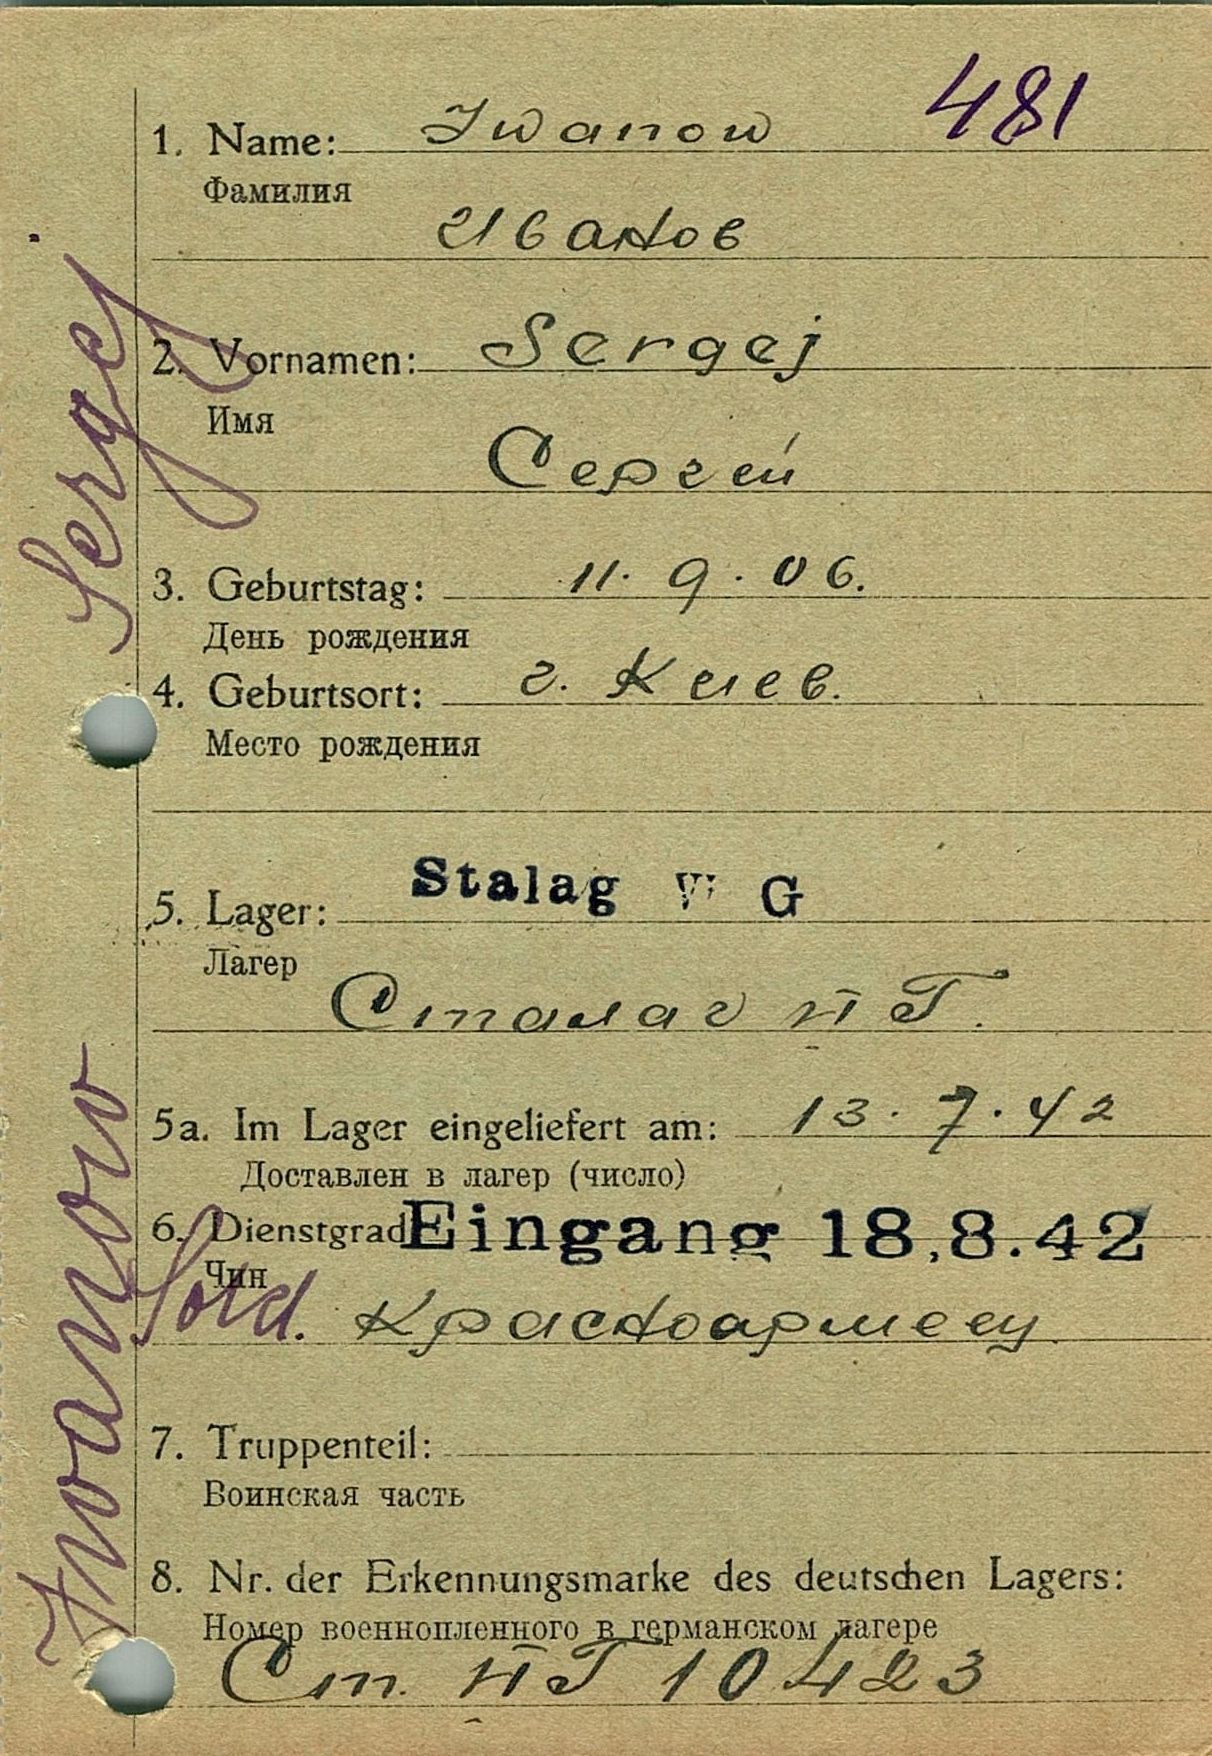 481
1. Name: Iwanow
Фамилия
Иванов
2. Vornamen: Sergej
Имя
Сергей
3. Geburtstag: 11.9.06.
День рождения
4. Geburtsort: г. Киев.
Место рождения
5. Lager: Stalag VI G
Лагер
Сталаг VI Г.
5a. Im Lager eingeliefert am: 13.7.42
Доставлен в лагер (число)
6. Dienstgrad Eingang 18.8.42
Чин
Sold. Красноармеец.
7. Truppenteil:
Воинская часть
8. Nr. der Erkennungsmarke des deutschen Lagers:
Номер военнопленного в германском лагере
Ст. VI Г 10423
Iwanow Sergej